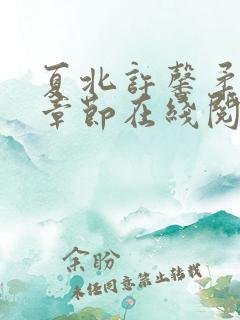 夏北許馨柔
章節在綫閱
余盼
未经同意禁止转载